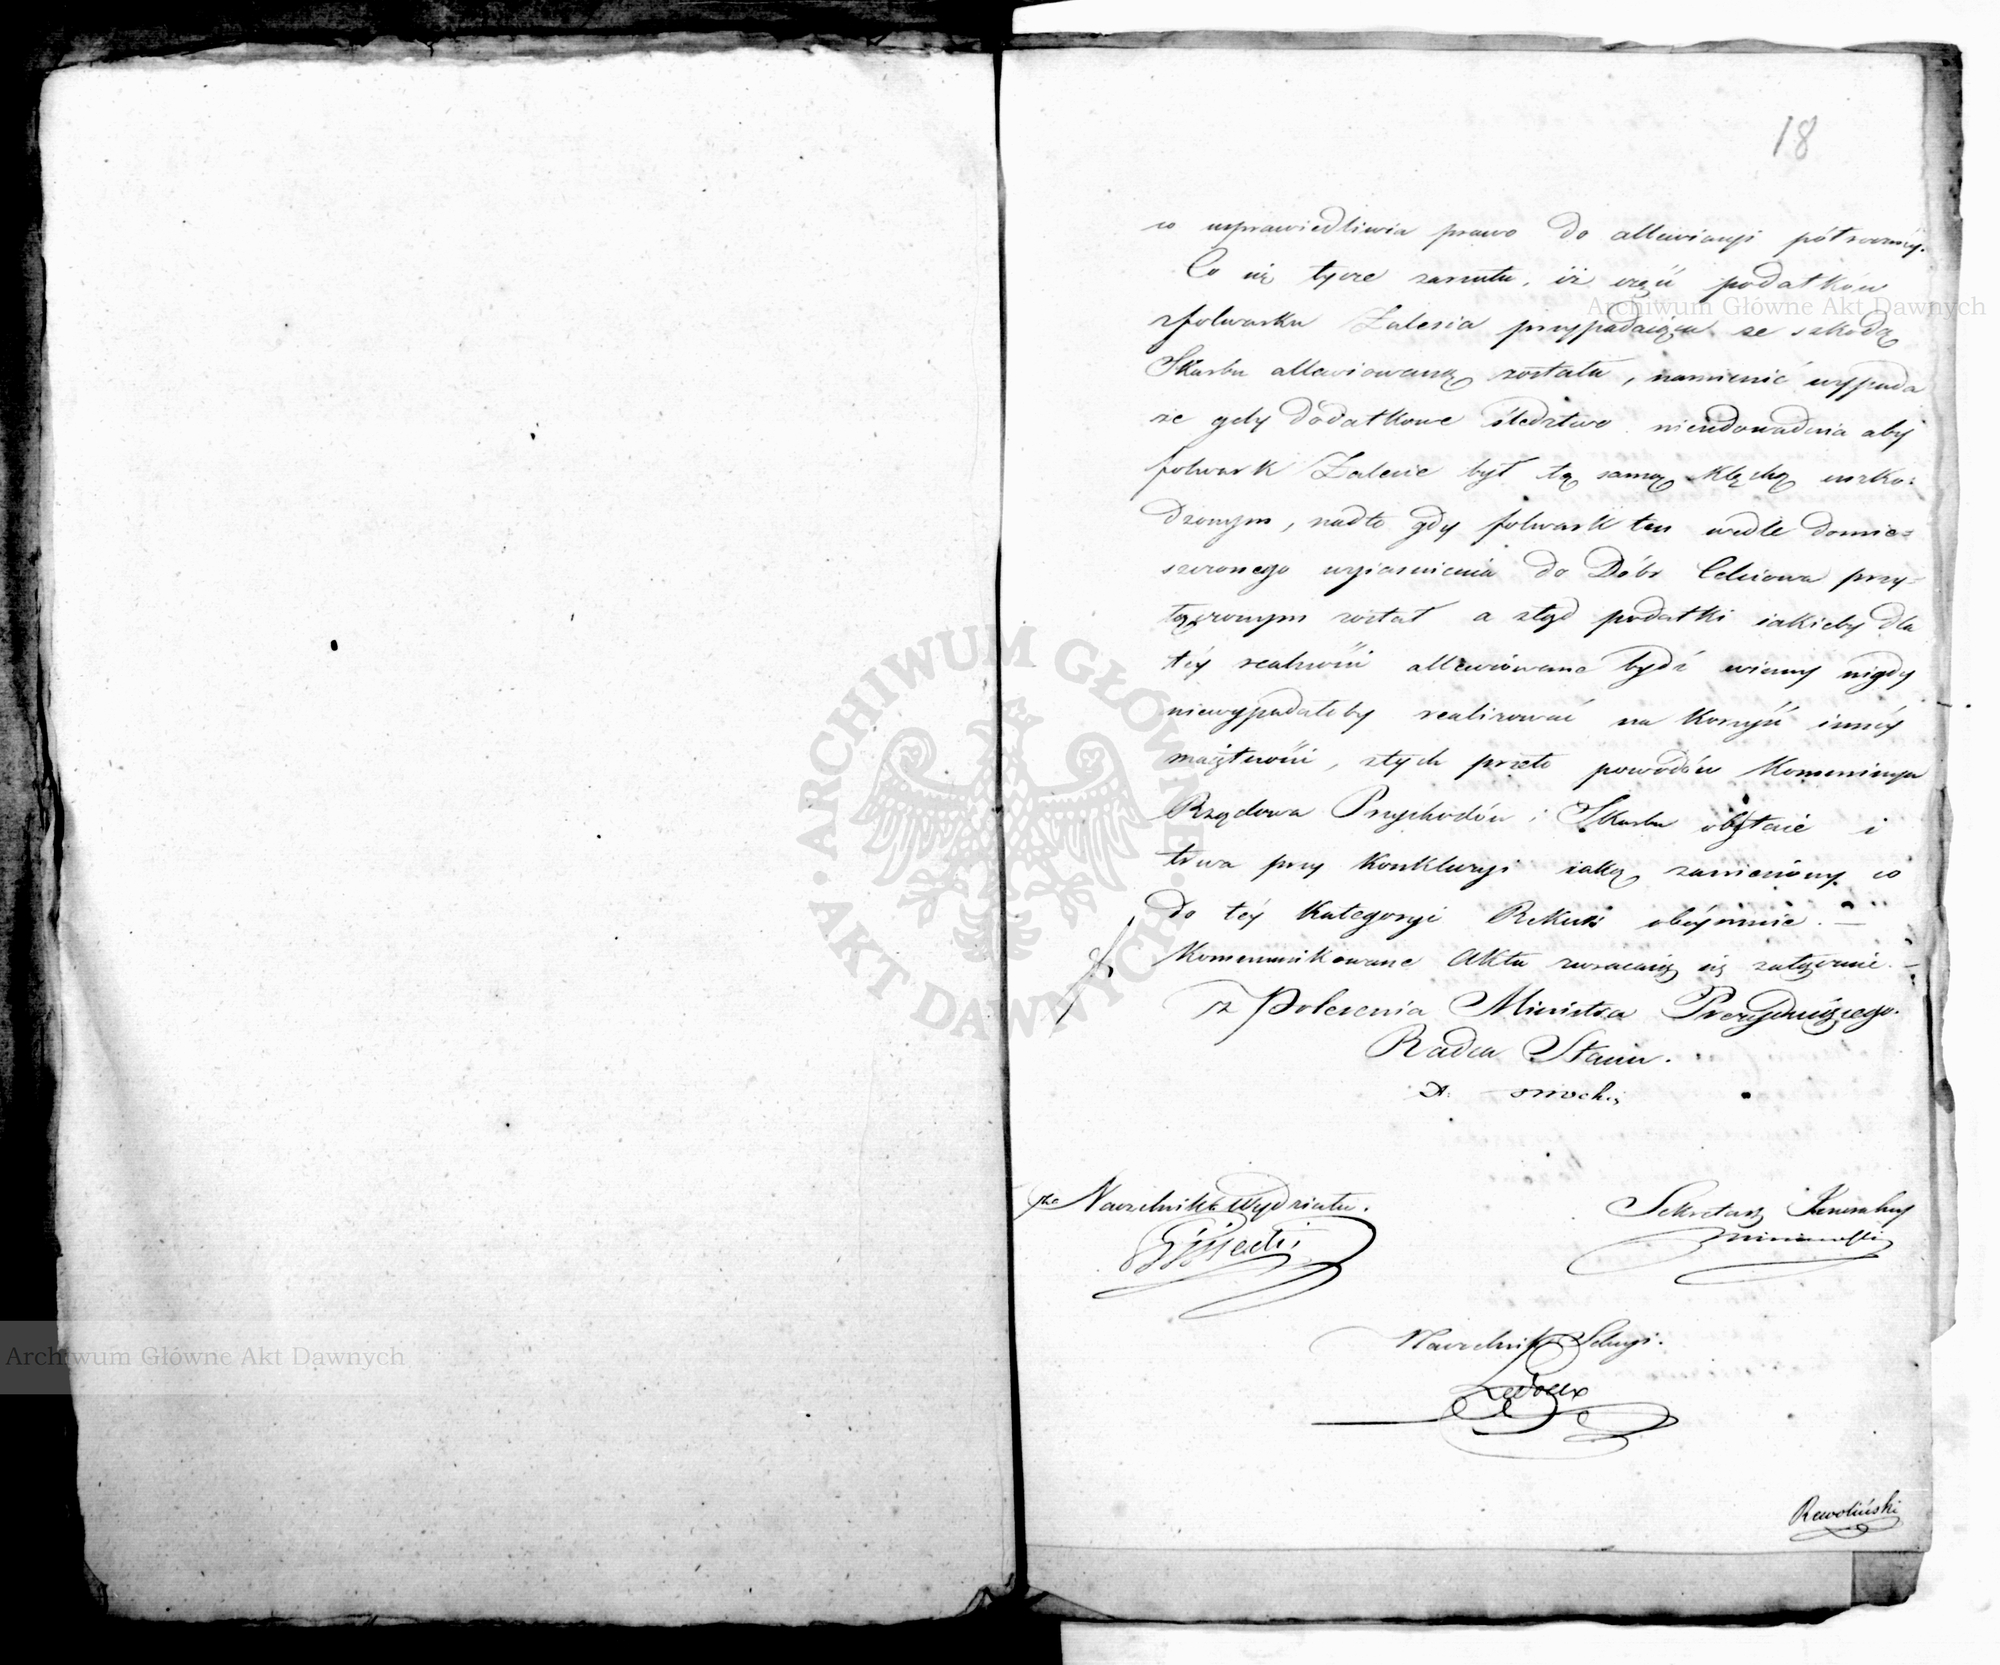 18
co usprawiedliwia prawo do allewiacyi półroczney.
Co się tycze zarzutu, iż część podatków
zfolwarku Zalesia przypadaiąca ze szkodą
Skarbu allewiowaną została, namienić wypada
że gdy dodatkowe śledztwo nieudowadnia aby
folwark Zalesie był tą samą klęską uszko=
dzonym, nadto gdy folwark ten wedle domie=
szczonego wyiasnienia do Dóbr Celiowa przy=
łączonym został a ztąd podatki iakieby dla
téy realności allewiowane bydź winny nigdy
niewypadałoby realizować na korzyść innéy
maiętności, ztych przeto powodów Kommissya
Rządowa Przychodów i Skarbu obstaie i
trwa przy konkluzyi iaką zamieszczoną co
do téy kategoryi Rekurs obéymuie. —
Kommunikowane Akta zwracaią się załącznie. —
z Polecenia Ministra Prezyduiącego.
Radca Stanu.
Naczelnik Wydziału.
Sekretarz Jeneralny
Naczelnik Sekcyi.
Ledoux
Rewoliński
Archiwum Główne Akt Dawnych
ARCHIWUM GŁÓWNE AKT DAWNYCH
Archiwum Główne Akt Dawnych